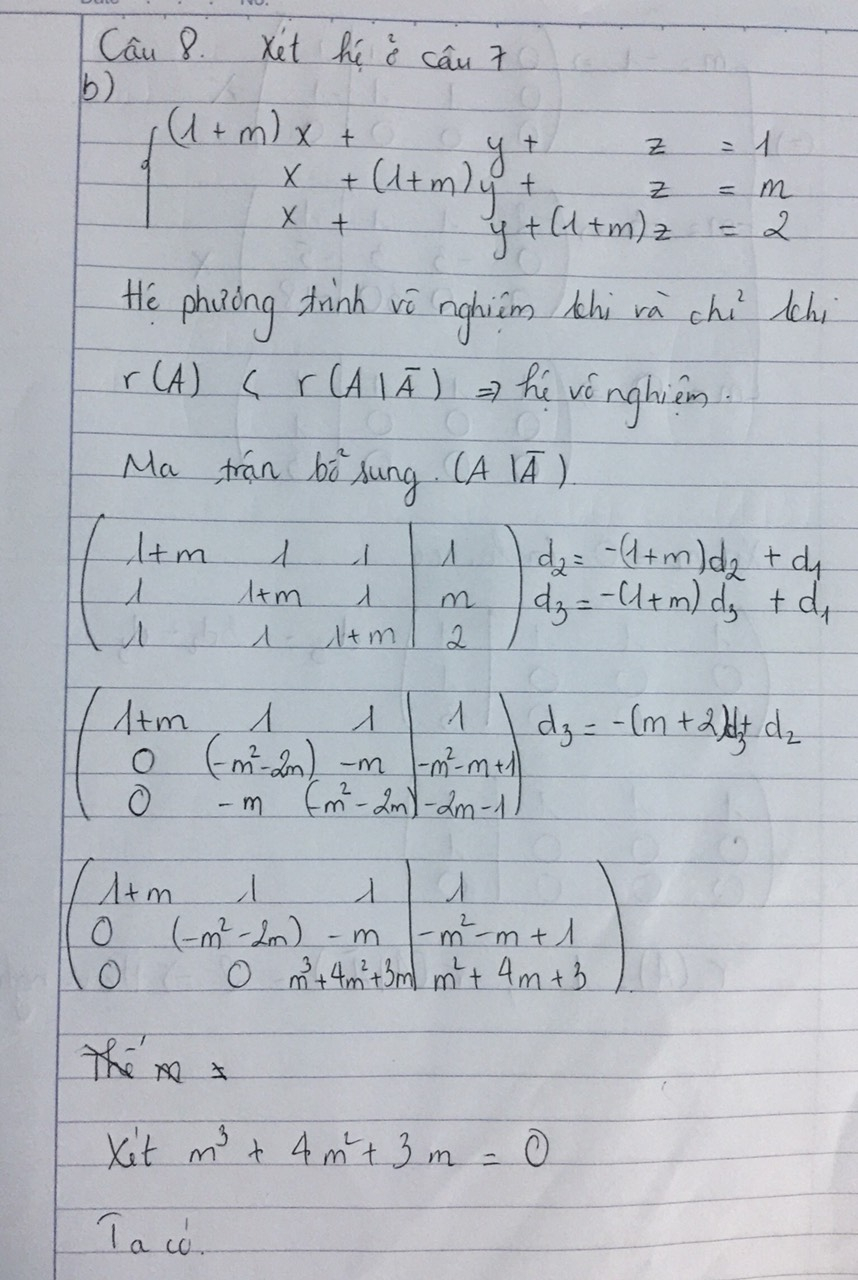 Câu 8. Xét hệ ở câu 7
b)
(1+m)x + y + z = 1
x + (1+m)y + z = m
x + y + (1+m)z = 2
Hệ phương trình vô nghiệm khi và chỉ khi
r(A) < r(A|Ā) => hệ vô nghiệm.
Ma trận bổ sung. (A|Ā)
1+m 1 1 | 1 d₂ = -(1+m)d₂ + d₁
1 1+m 1 | m d₃ = -(1+m)d₃ + d₁
1 1 1+m | 2
1+m 1 1 | 1 d₃ = -(m+2)d₃ + d₂
0 (-m²-2m) -m | -m²-m+1
0 -m (-m²-2m) | -2m-1
1+m 1 1 | 1
0 (-m²-2m) -m | -m²-m+1
0 0 m³+4m²+3m | m²+4m+3
Thế m =
Xét m³ + 4m² + 3m = 0
Ta có.